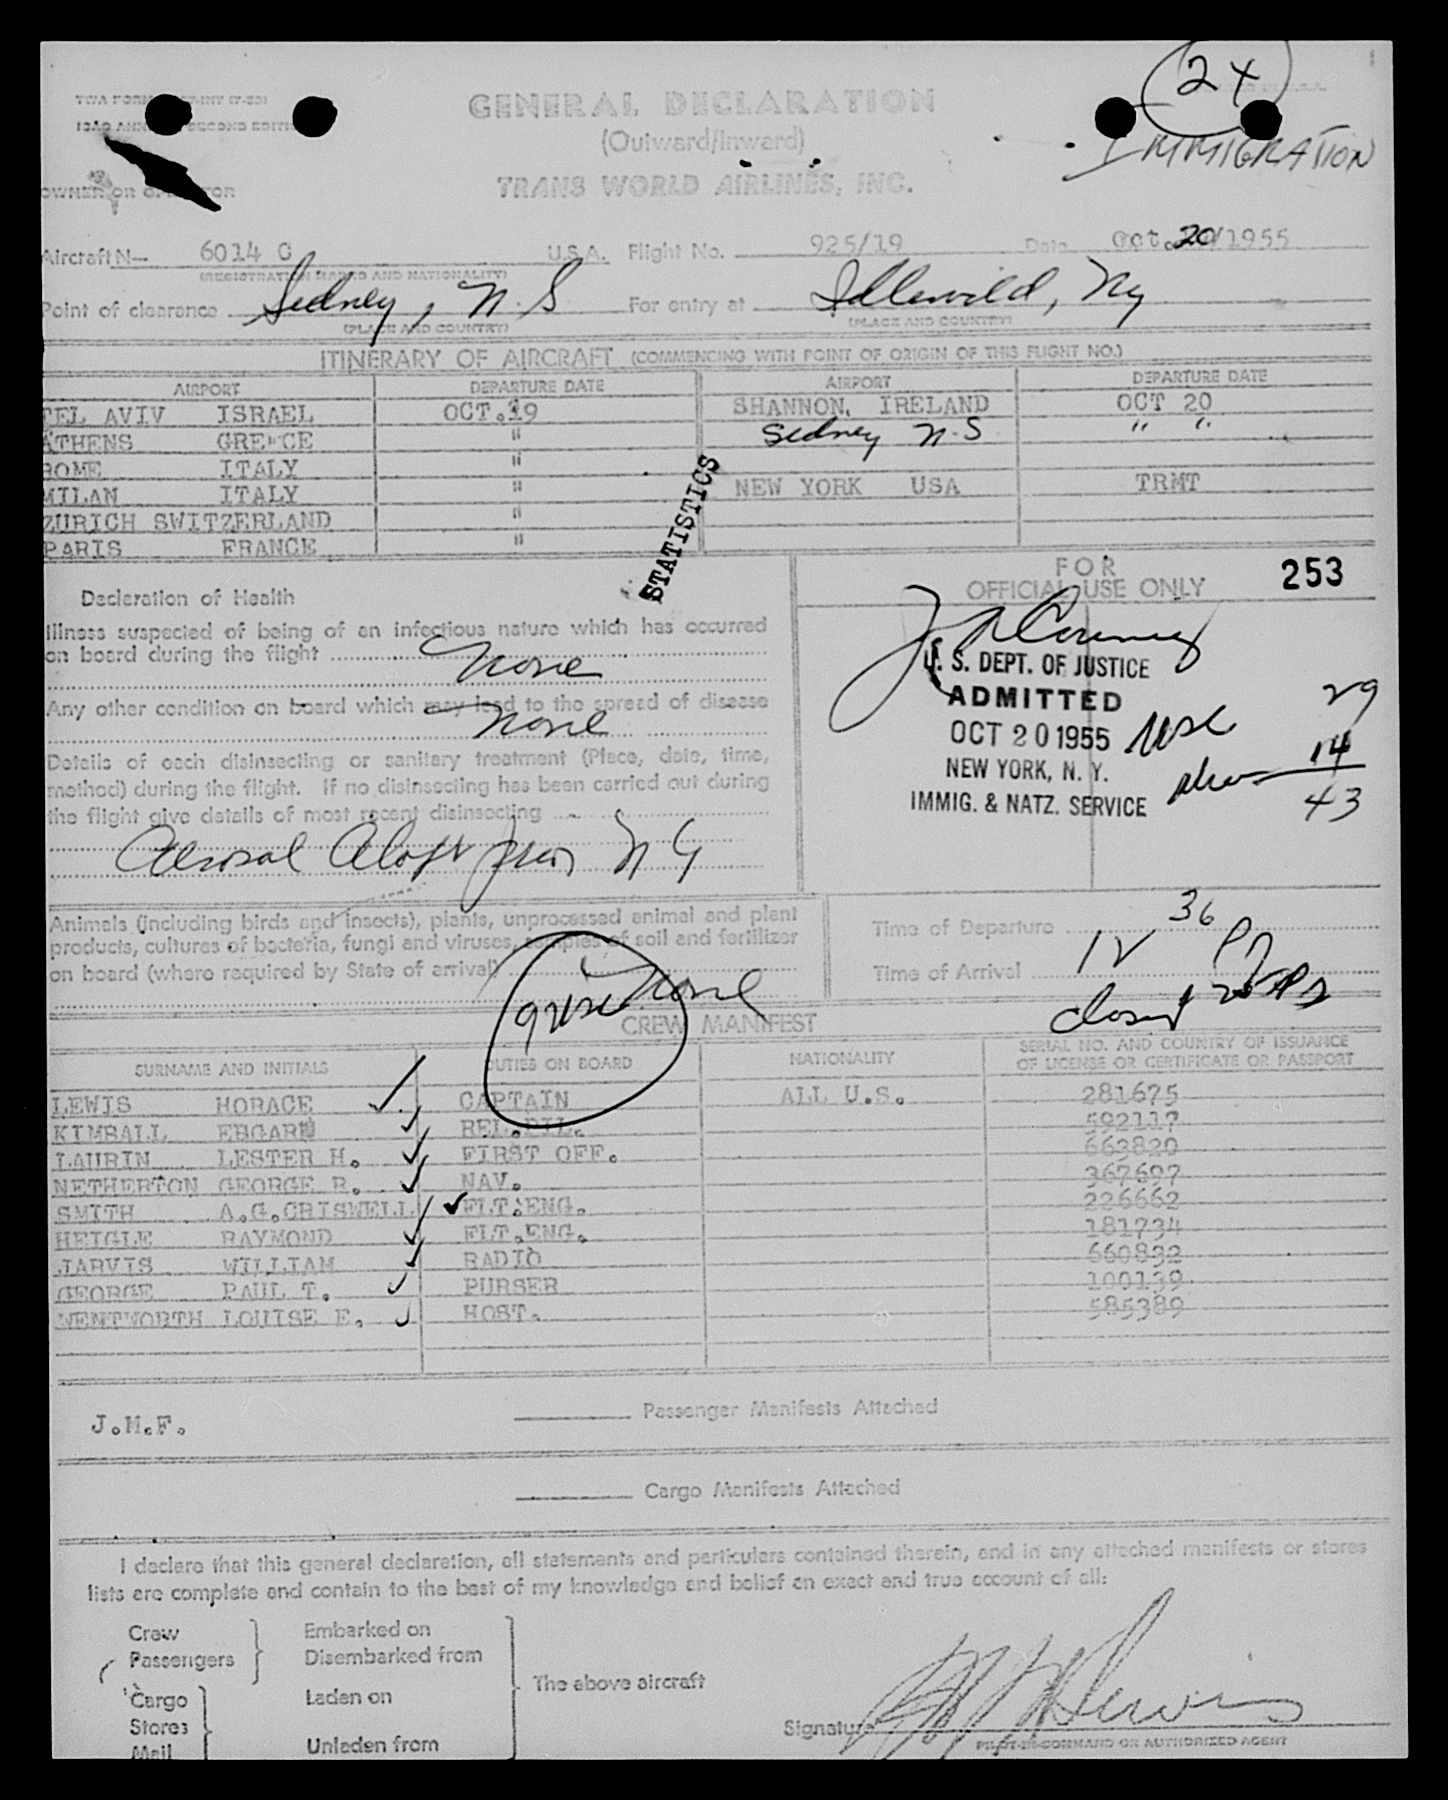 24
GENERAL DECLARATION
IMMIGRATION
(Outward/Inward)
TRANS WORLD AIRLINES, INC.
OWNER OR
Aircraft N— 6014 C U.S.A. Flight No. 925/19 Date Oct. 20/1955
(REGISTRATION MARKS AND NATIONALITY)
Point of clearance Sedney, N.S For entry at Idlewild, Ny
(PLACE AND COUNTRY) (PLACE AND COUNTRY)
ITINERARY OF AIRCRAFT (COMMENCING WITH POINT OF ORIGIN OF THIS FLIGHT NO.)
AIRPORT DEPARTURE DATE AIRPORT DEPARTURE DATE
TEL AVIV ISRAEL OCT.19 SHANNON, IRELAND OCT 20
ATHENS GREECE " Sedney N.S " "
ROME ITALY "
MILAN ITALY " NEW YORK USA TRMT
ZURICH SWITZERLAND "
PARIS FRANCE "
STATISTICS
FOR
OFFICIAL USE ONLY 253
Declaration of Health
Illness suspected of being of an infectious nature which has occurred
on board during the flight None
Any other condition on board which may lead to the spread of disease
None
Details of each disinsecting or sanitary treatment (Place, date, time,
method) during the flight. If no disinsecting has been carried out during
the flight give details of most recent disinsecting
U. S. DEPT. OF JUSTICE
ADMITTED
OCT 20 1955 USC 29
NEW YORK, N. Y. 14
IMMIG. & NATZ. SERVICE 43
Animals (including birds and insects), plants, unprocessed animal and plant
products, cultures of bacteria, fungi and viruses, samples of soil and fertilizer
on board (where required by State of arrival) None
Time of Departure 36
Time of Arrival
CREW MANIFEST
SURNAME AND INITIALS DUTIES ON BOARD NATIONALITY SERIAL NO. AND COUNTRY OF ISSUANCE
OF LICENSE OR CERTIFICATE OR PASSPORT
LEWIS HORACE CAPTAIN ALL U.S. 281675
KIMBALL EDGAR REL.PIL. 592117
LAURIN LESTER H. FIRST OFF. 663820
NETHERTON GEORGE R. NAV. 367697
SMITH A.G.CRISWELL FLT.ENG. 226662
HEIGLE RAYMOND FLT.ENG. 181734
JARVIS WILLIAM RADIO 660832
GEORGE PAUL T. PURSER 100139
WENTWORTH LOUISE E. HOST. 585389
J.M.F. Passenger Manifests Attached
Cargo Manifests Attached
I declare that this general declaration, all statements and particulars contained therein, and in any attached manifests or stores
lists are complete and contain to the best of my knowledge and belief an exact and true account of all:
Crew Embarked on
Passengers Disembarked from
The above aircraft
Cargo Laden on
Stores
Mail Unladen from
Signature
PILOT-IN-COMMAND OR AUTHORIZED AGENT